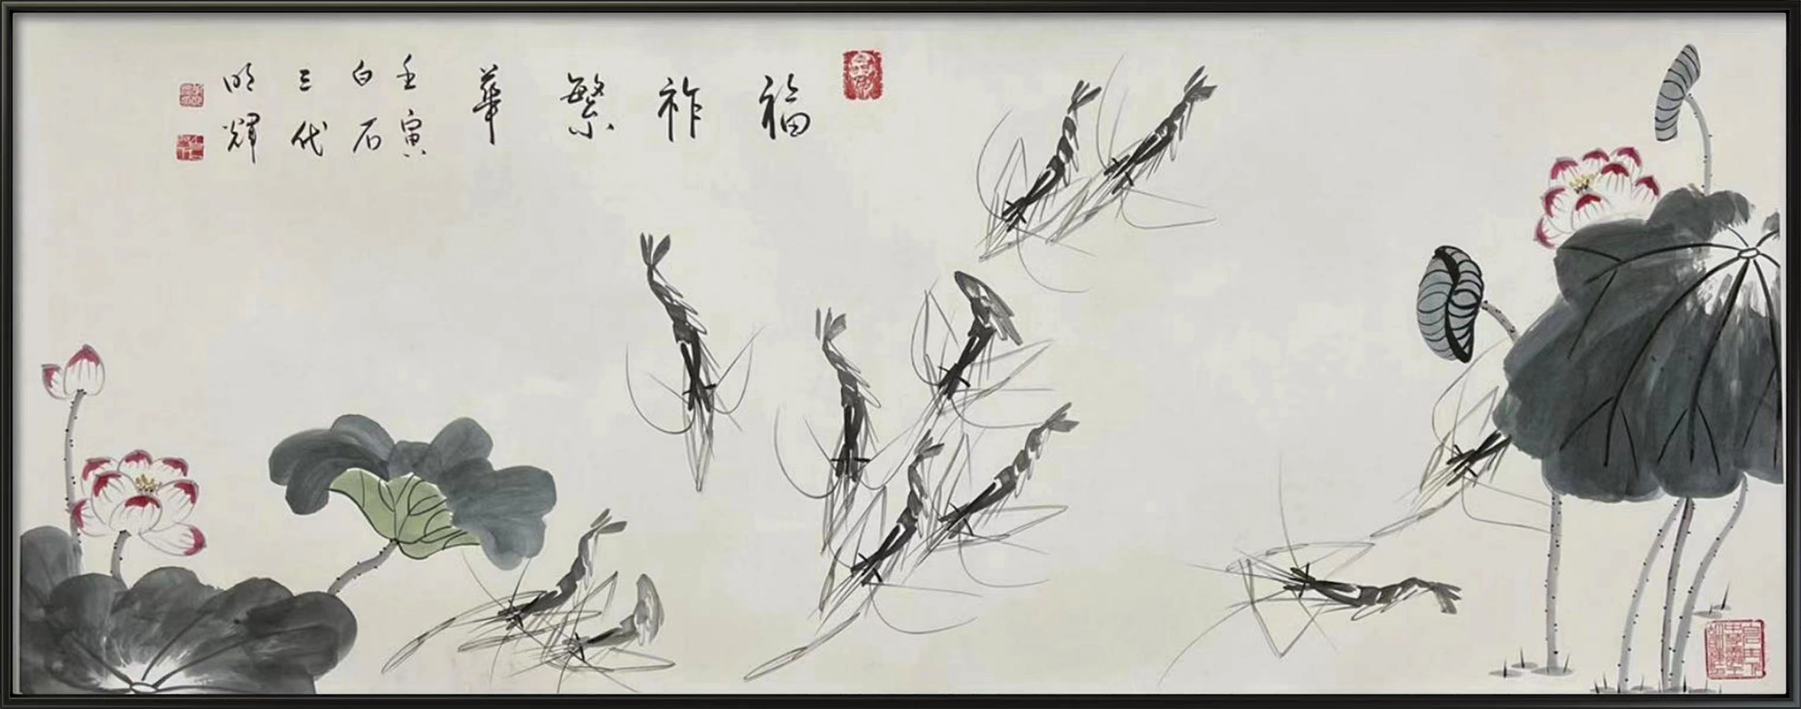 福祚繁華
壬寅
白石
三代
明輝